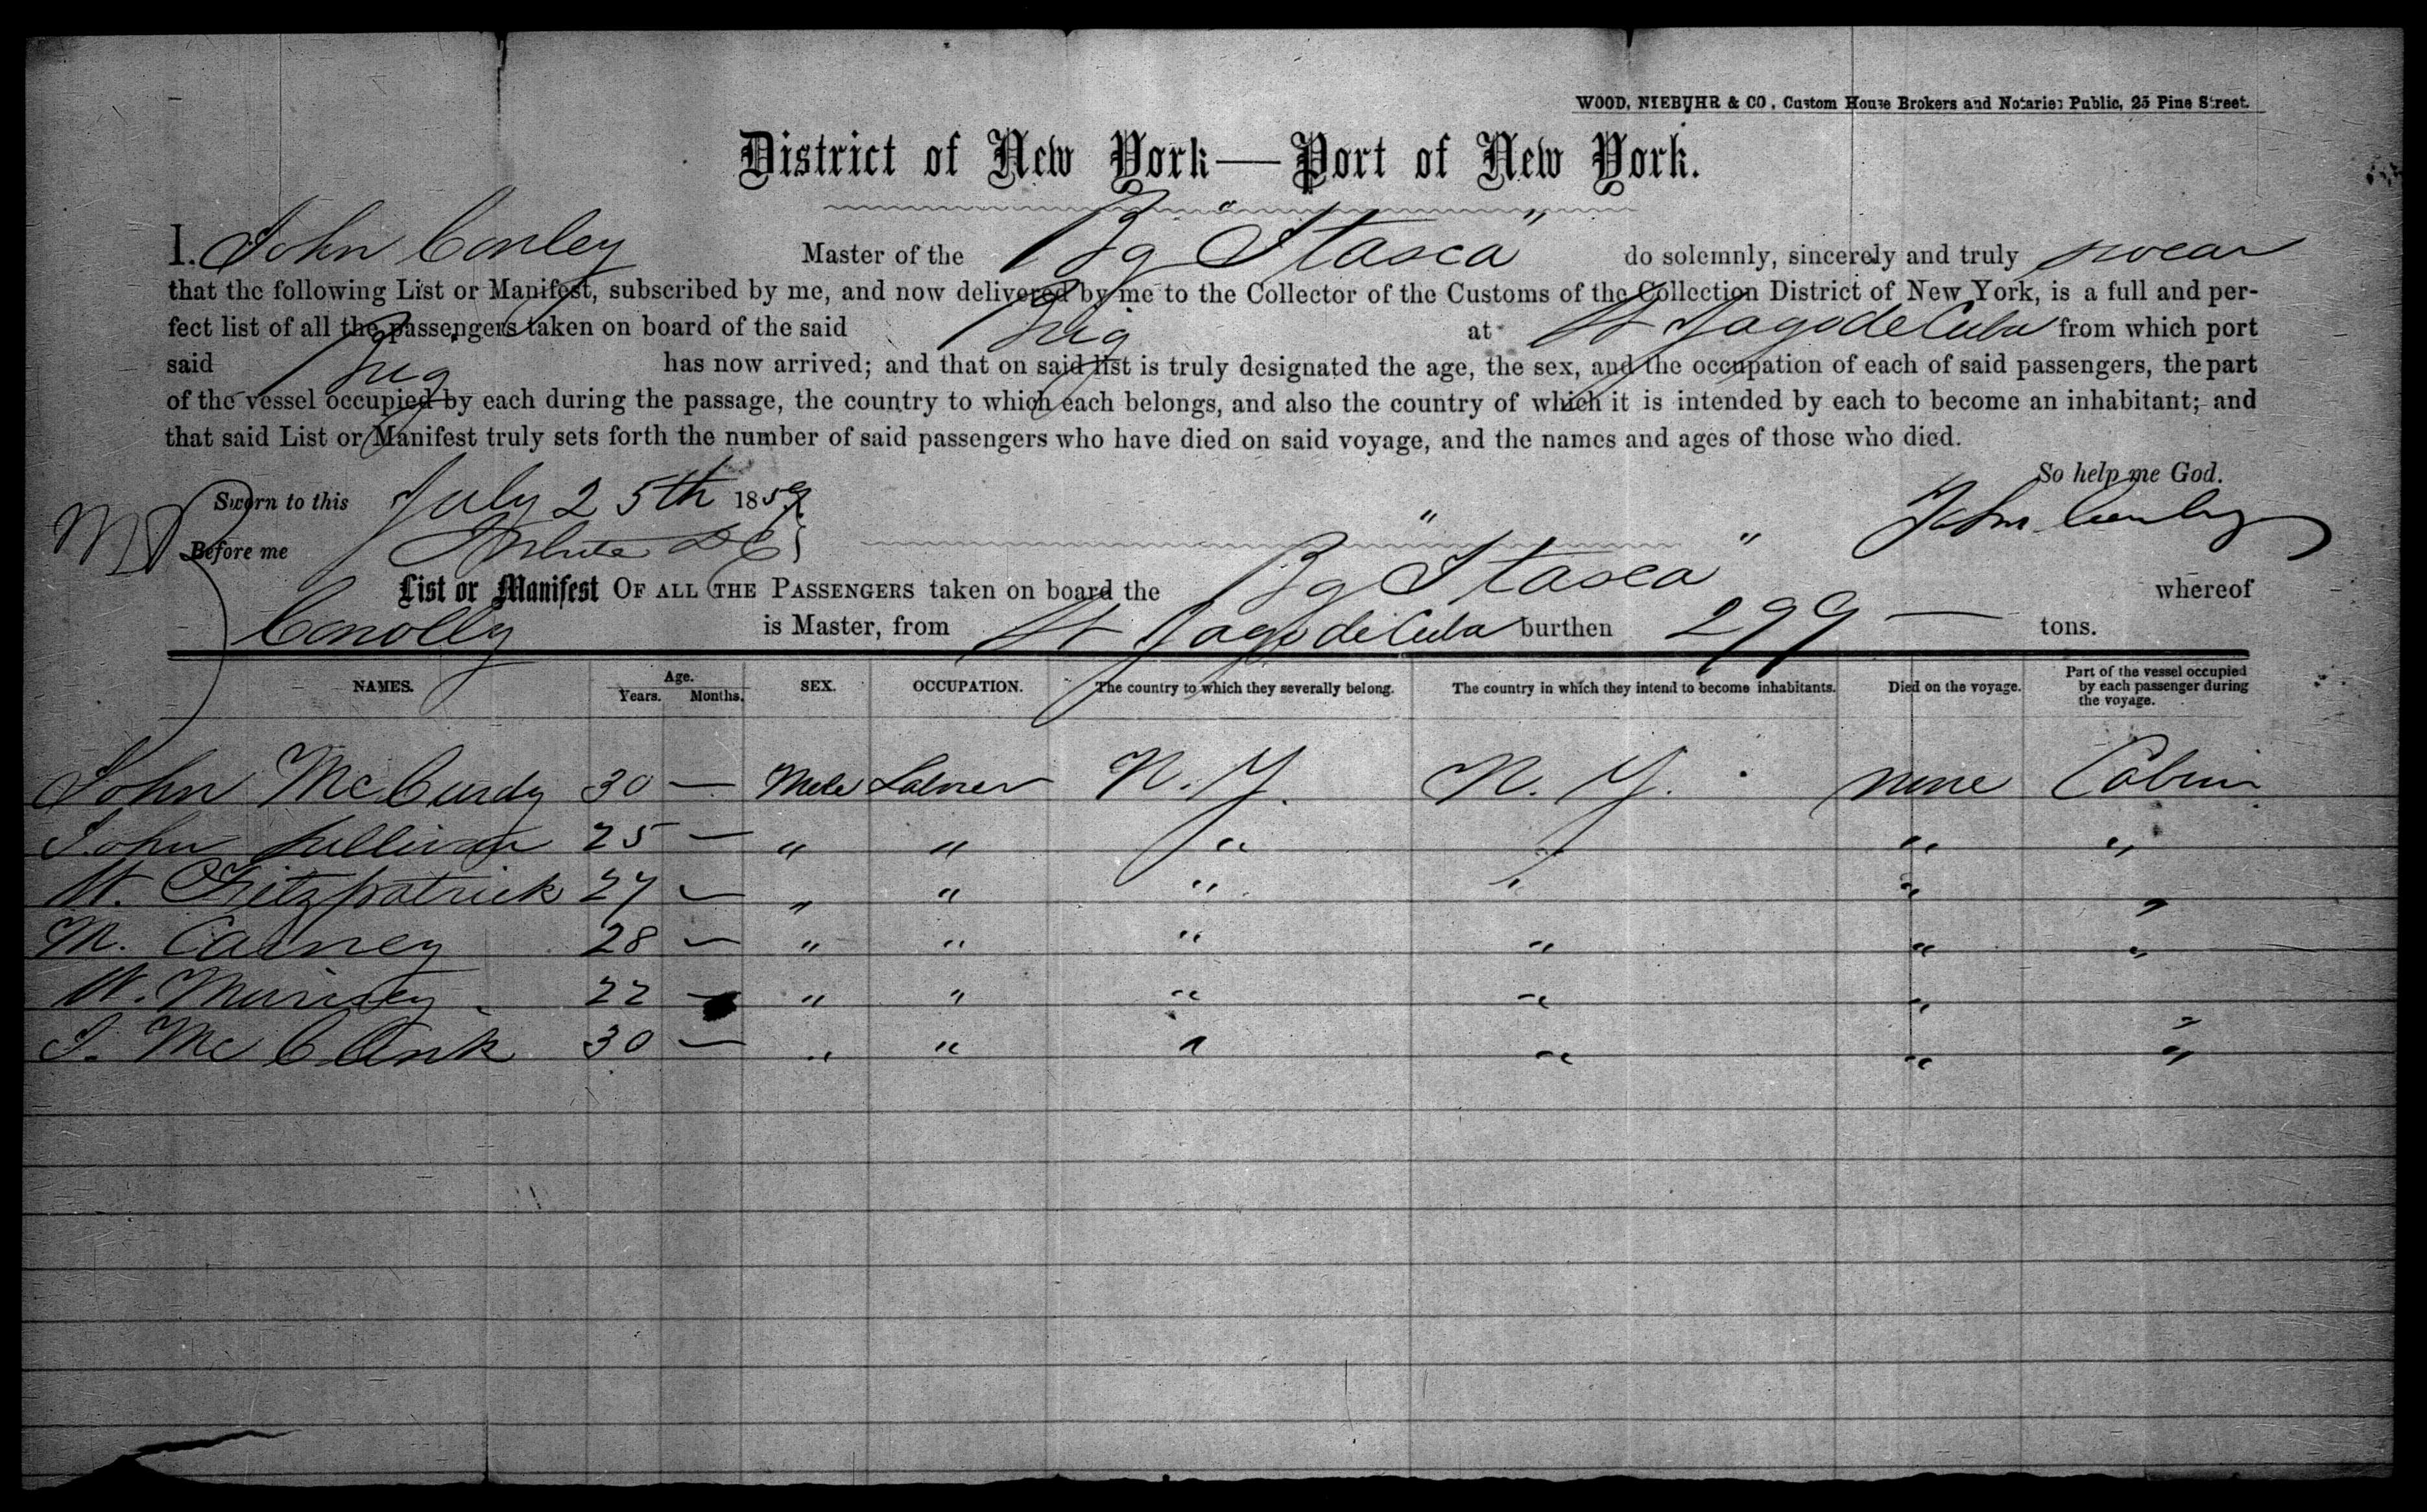 WOOD, NIEBUHR & CO., Custom House Brokers and Notaries Public, 25 Pine Street.
District of New York—Port of New York.
I. John Conley Master of the Bg "Itasca" do solemnly, sincerely and truly swear
that the following List or Manifest, subscribed by me, and now delivered by me to the Collector of the Customs of the Collection District of New York, is a full and per-
fect list of all the passengers taken on board of the said Brig at St Jago de Cuba from which port
said Brig has now arrived; and that on said list is truly designated the age, the sex, and the occupation of each of said passengers, the part
of the vessel occupied by each during the passage, the country to which each belongs, and also the country of which it is intended by each to become an inhabitant; and
that said List or Manifest truly sets forth the number of said passengers who have died on said voyage, and the names and ages of those who died.
So help me God.
Sworn to this July 25th 1859 John Conley
Before me
List or Manifest OF ALL THE PASSENGERS taken on board the Bg "Itasca" whereof
Conolly is Master, from St Jago de Cuba burthen 299 — tons.
NAMES. Age. Years. Months. SEX. OCCUPATION. The country to which they severally belong. The country in which they intend to become inhabitants. Died on the voyage. Part of the vessel occupied by each passenger during the voyage.
John McCurdy 30 — Male Laborer N. Y. N. Y. none Cabin
John Sullivan 25 — " " " " " "
W. Fitzpatrick 27 — " " " " " "
M. Carney 28 — " " " " " "
W. Murrey 22 — " " " " " "
J. Mc Clank 30 — " " " " " "